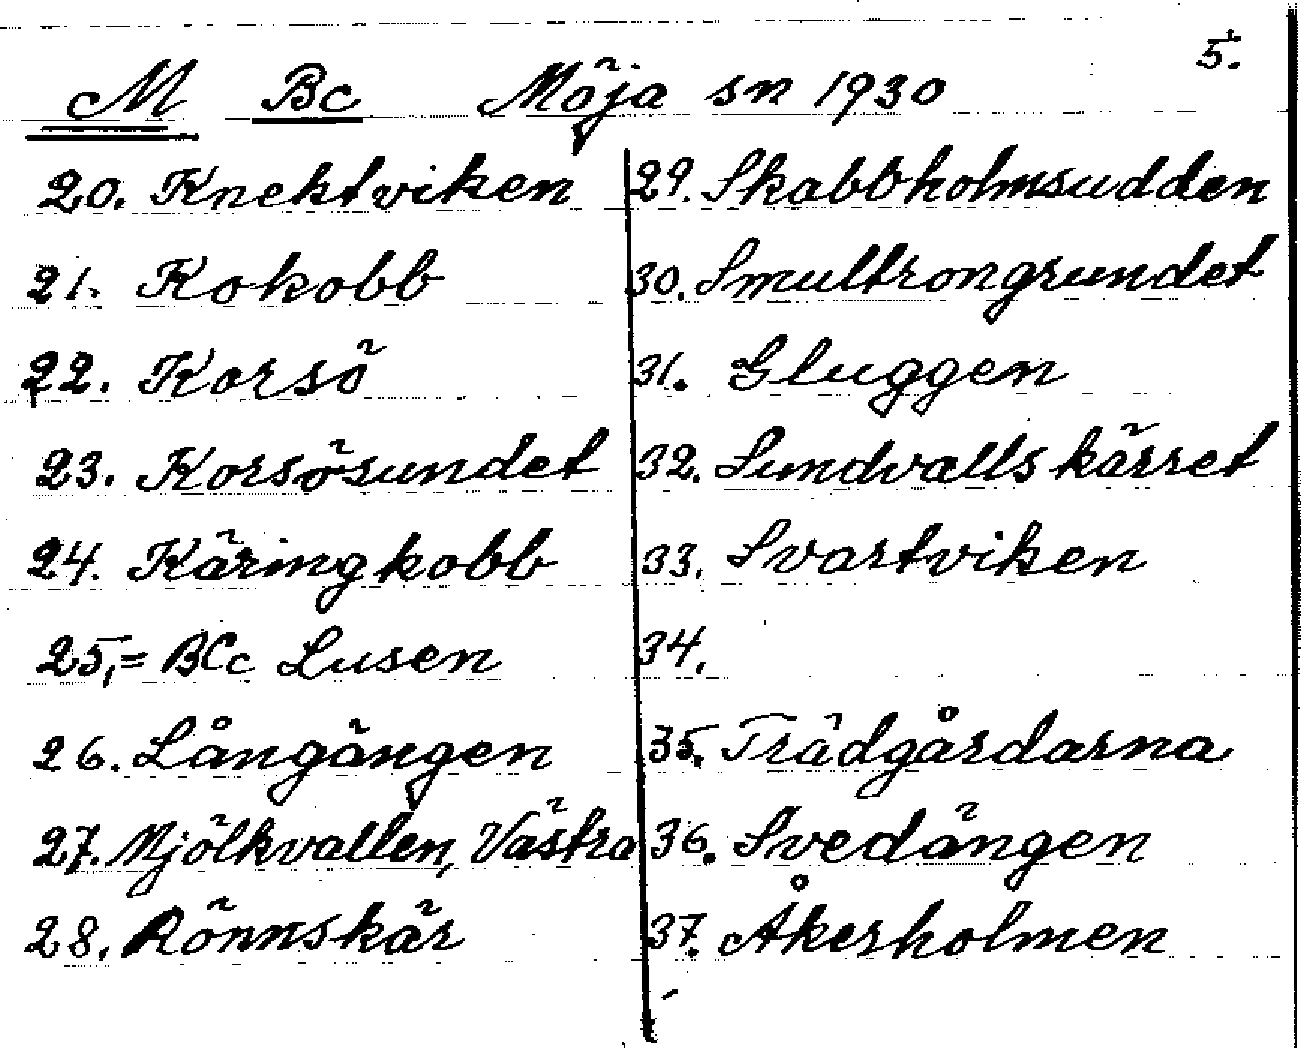 5.
M Bc Möja sn 1930
20. Knektviken
21. Kokobb
22. Korsö
23. Korsösundet
24. Käringkobb
25, = BCc Lusen
26. Långängen
27. Mjölkvallen, Västra
28. Rönnskär
29. Skabbholmsudden
30. Smultrongrundet
31. Gluggen
32. Sundvallskärret
33. Svartviken
34.
35. Trädgårdarna
36. Svedängen
37. Åkersholmen